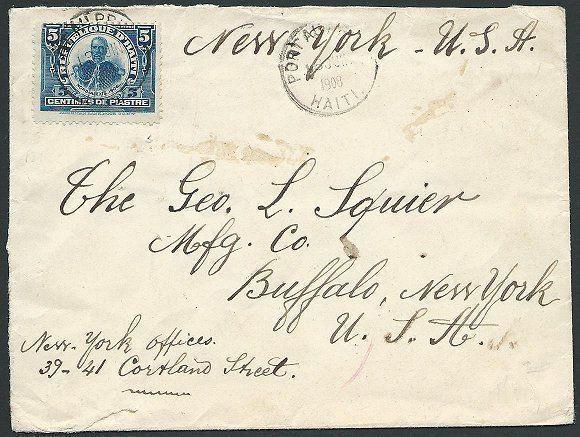 5 5
REPUBLIQUE D'HAITI
5 5
CENTIMES DE PIASTRE
New York - U.S.A.
PORT AU
1908
HAITI
The Geo. L. Squier
Mfg. Co.
Buffalo, New York
U. S. A.
New-York offices.
39-41 Cortland Street.